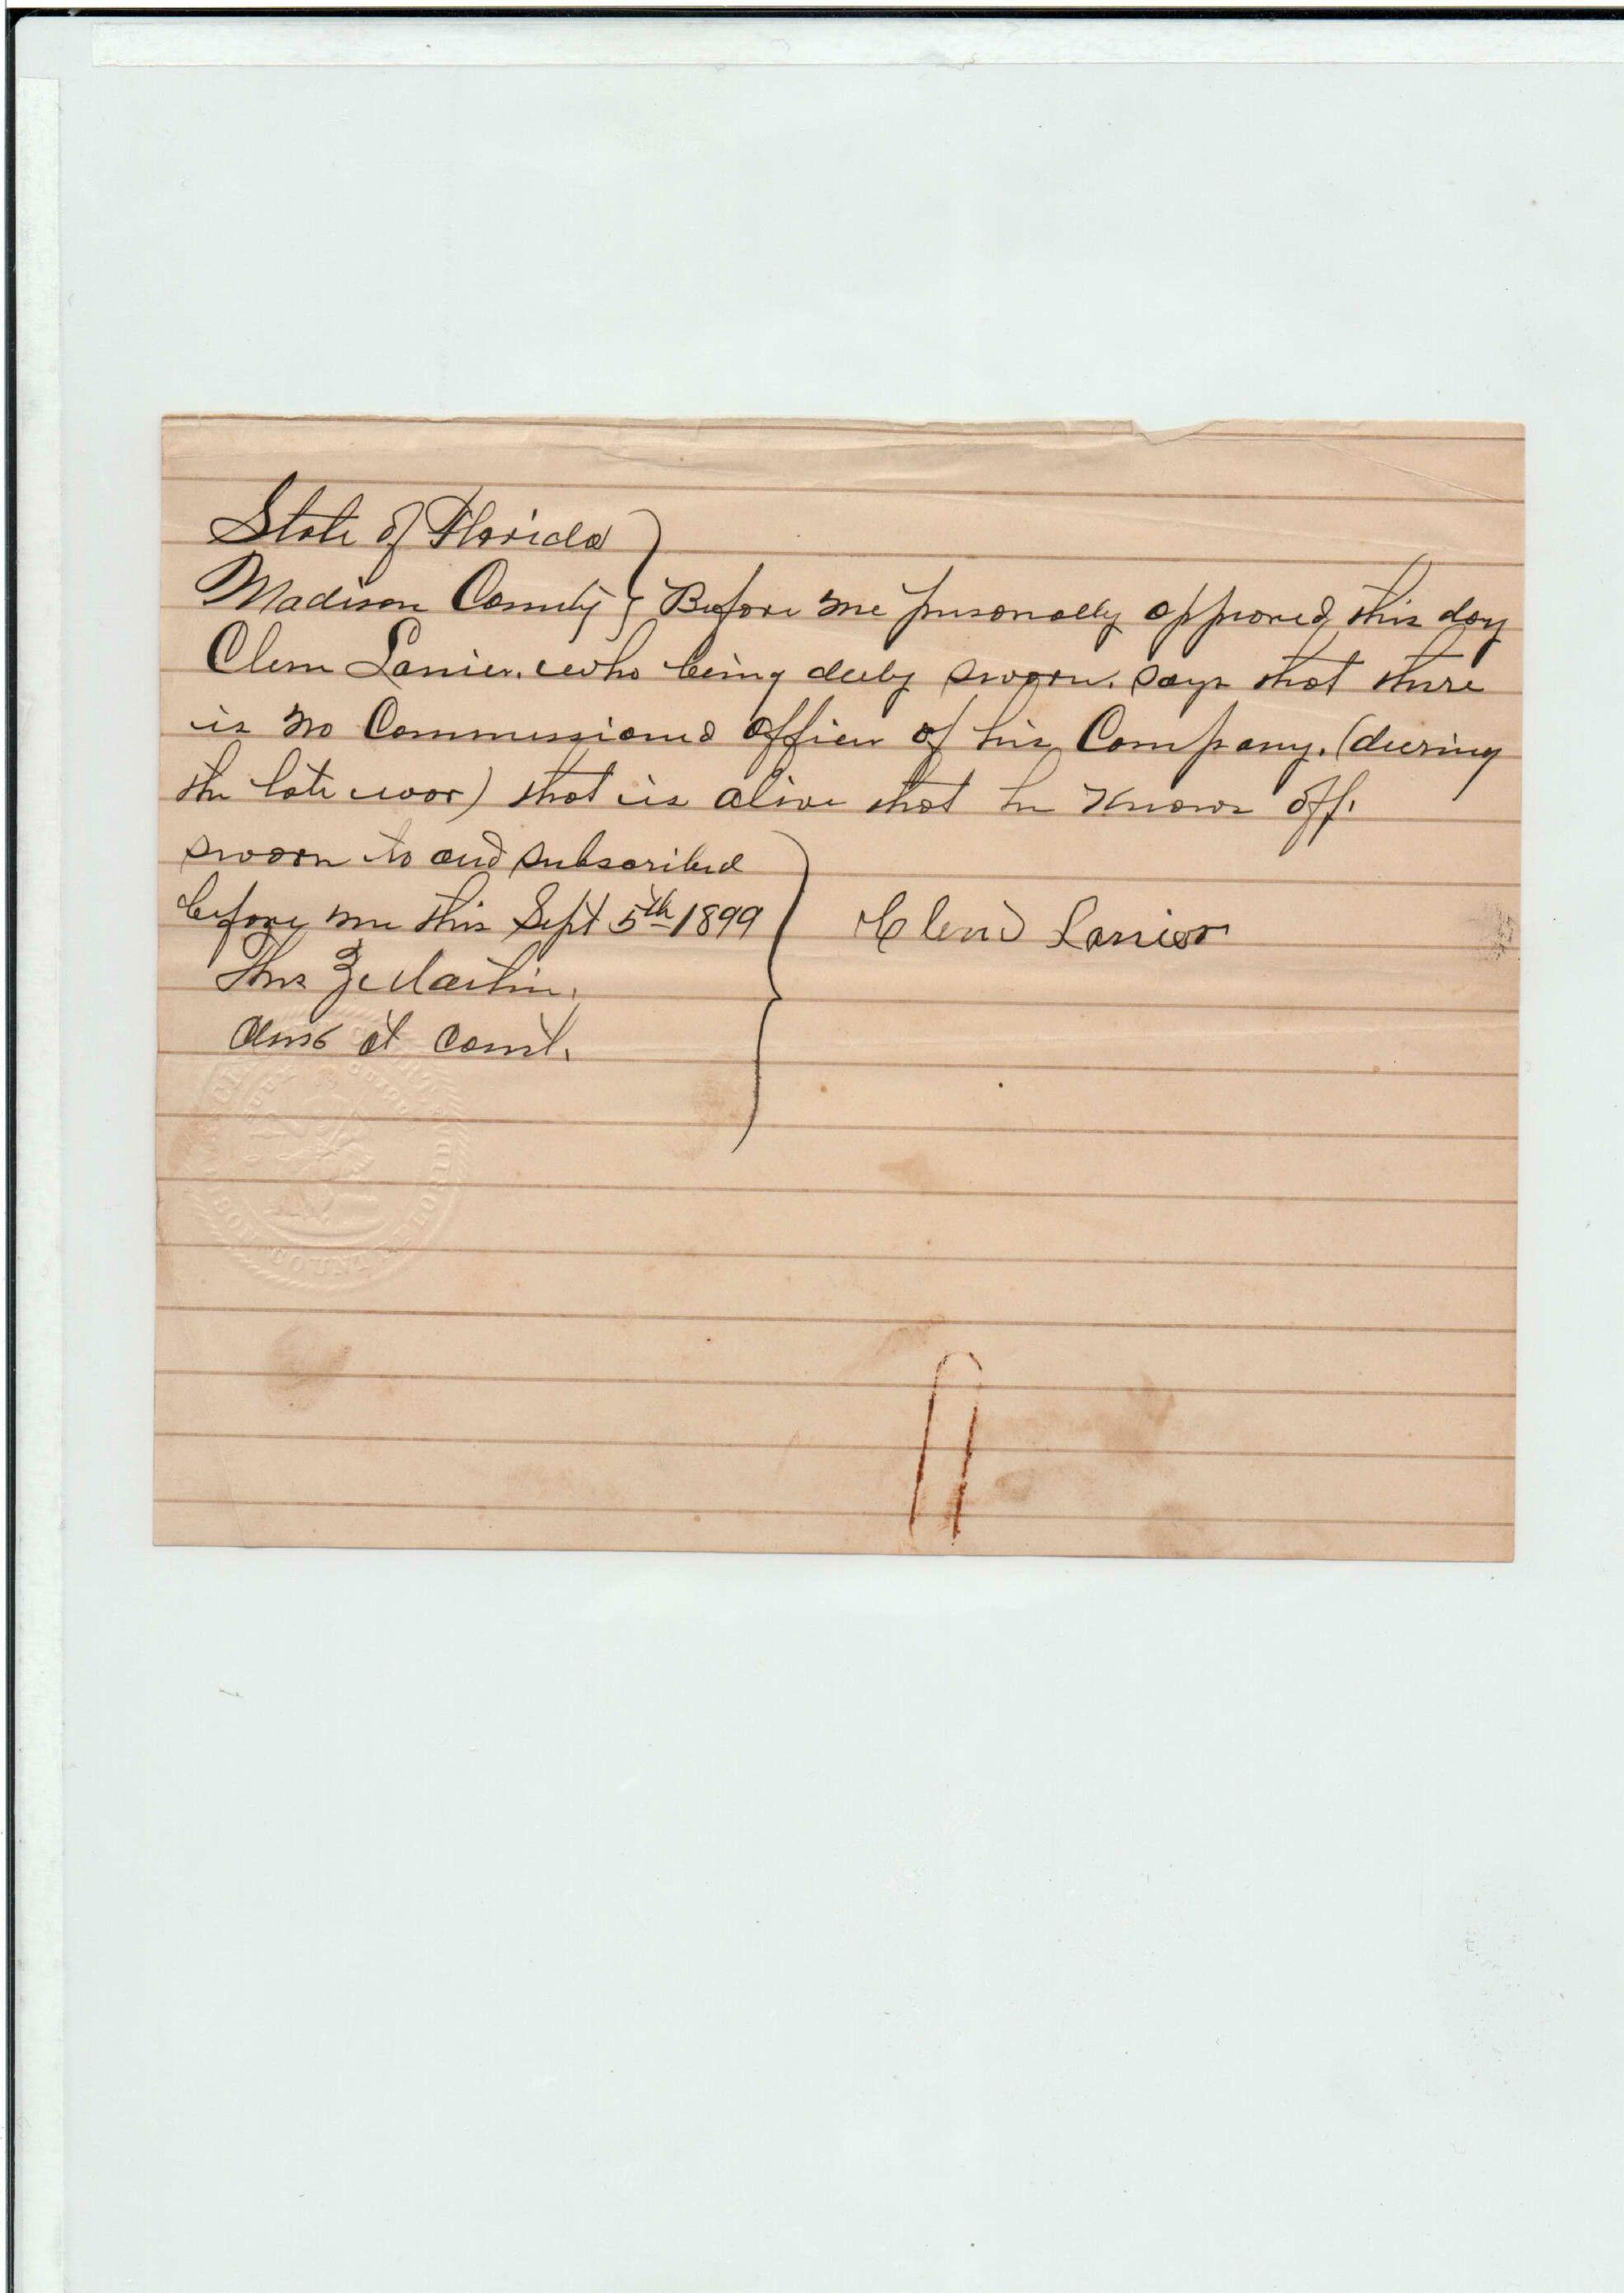 State of Florida }
Madison County } Before me personally appeared this day
Clem Lanier. who being duly sworn. says that there
is no Commissioned officer of his Company. (during
the late war) that is alive that he Knows off.
sworn to and subscribed
before me this Sept 5th 1899
Clem Lanier
Martin.
Court.
COUNTY